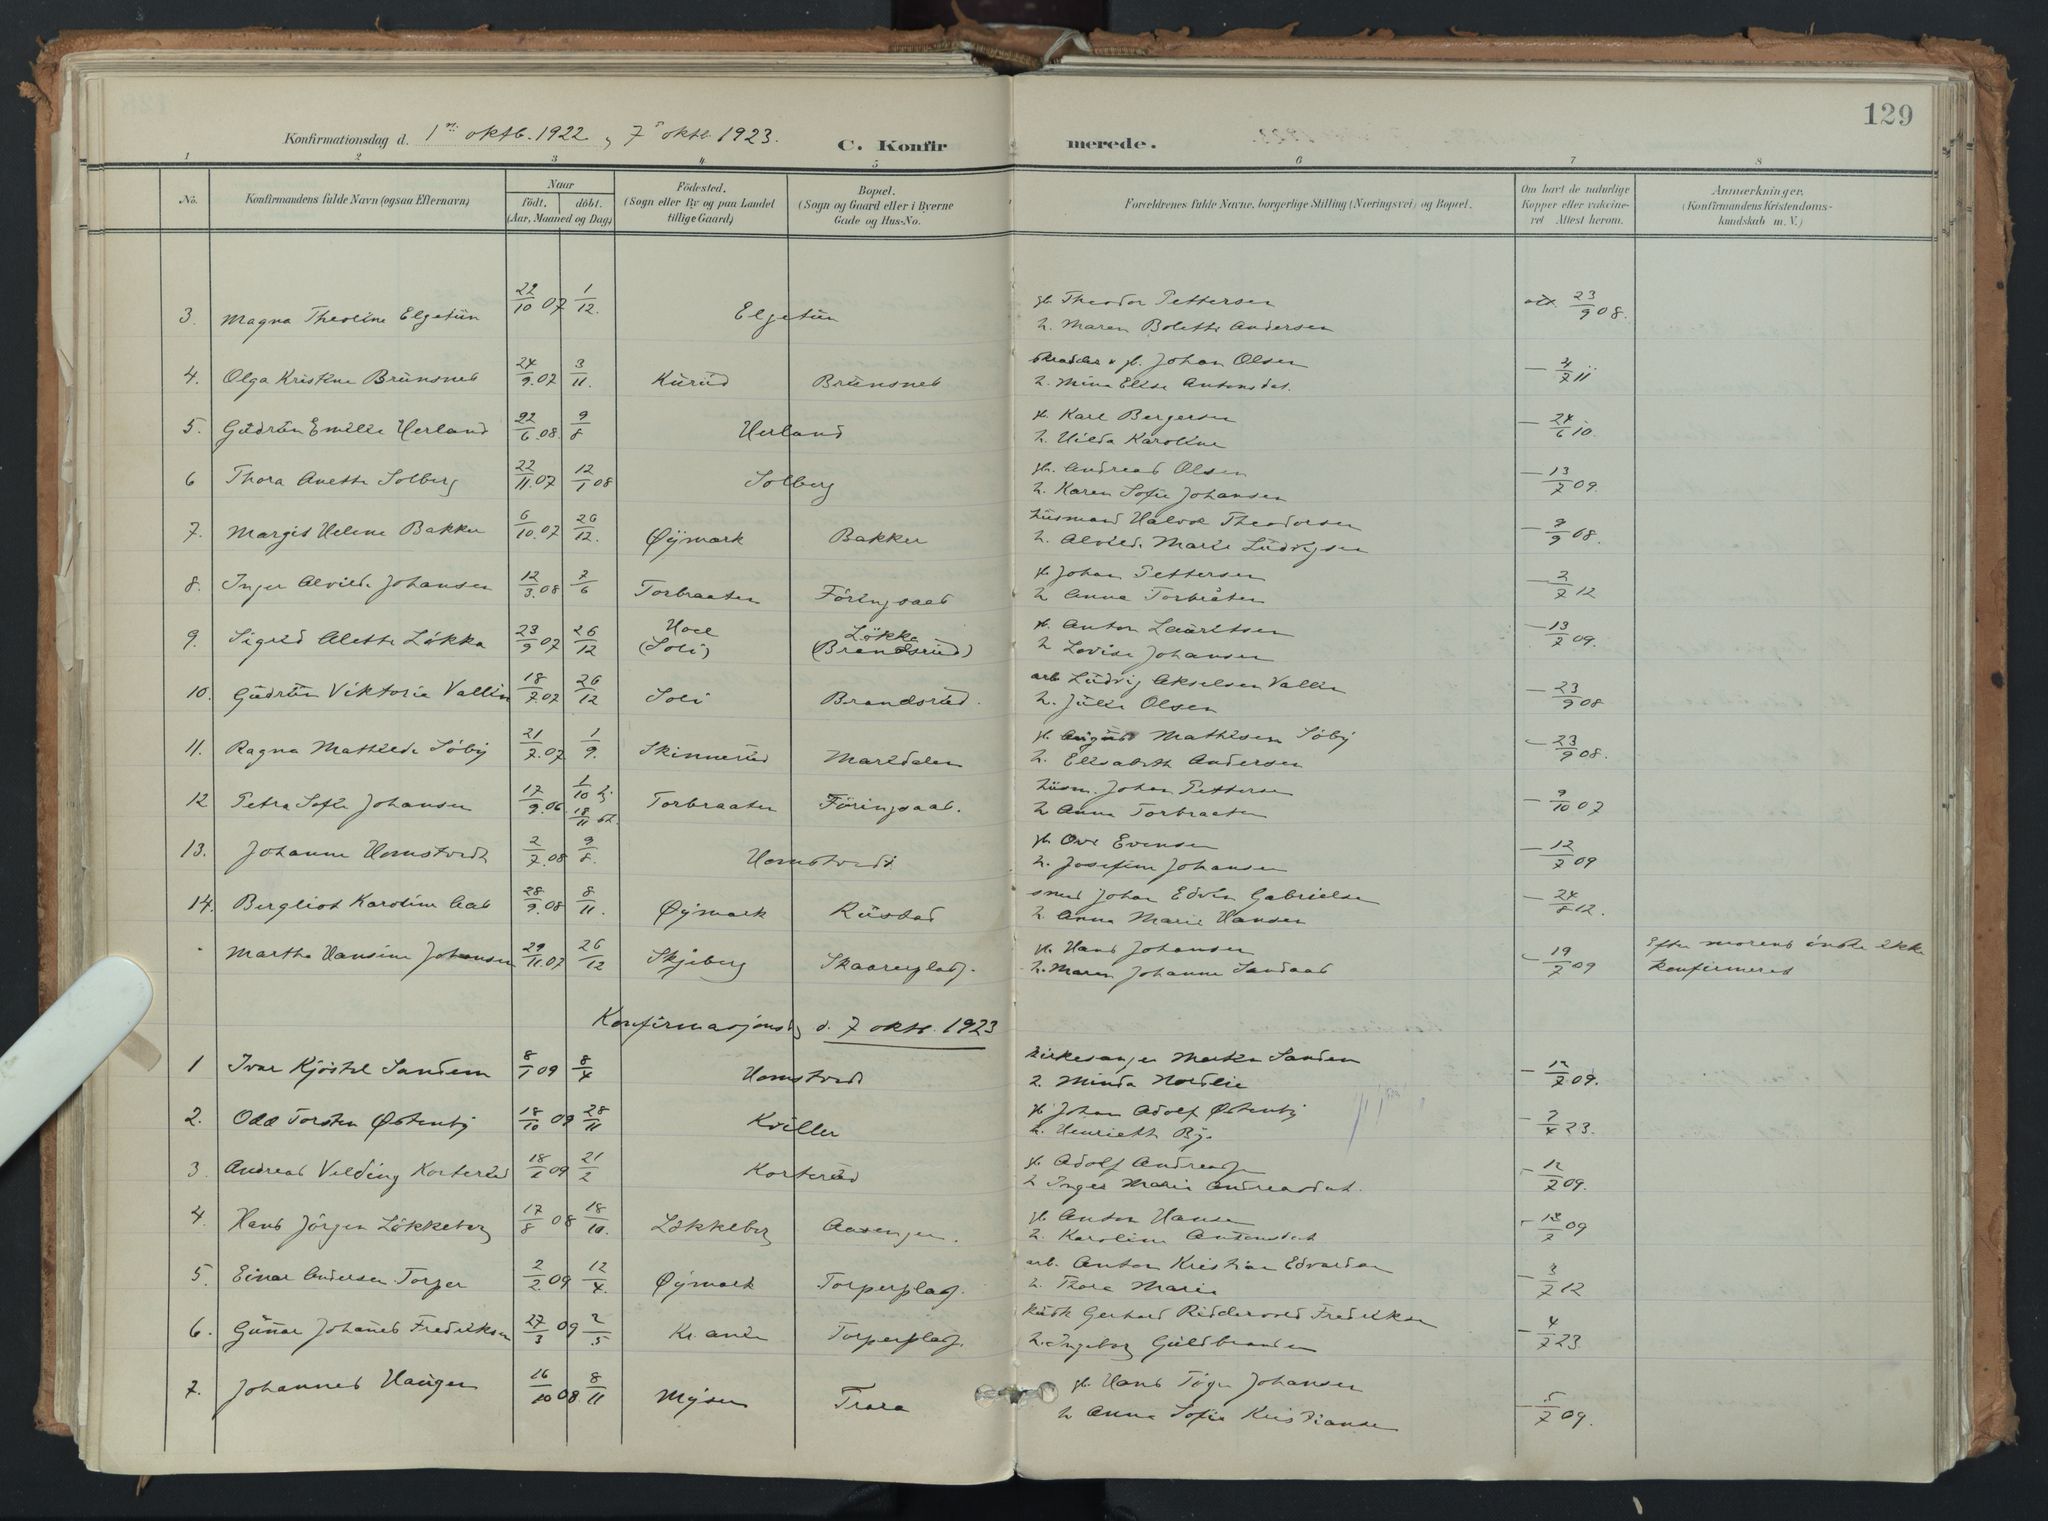 129
Konfirmationsdag d. 1ste oktb. 1922, 7de oktb. 1923.
C. Konfirmerede.
1 2 3 4 5 6 7 8
No. Konfirmandens fulde Navn (ogsaa Efternavn) Naar Födt. döbt. (Aar, Maaned og Dag) Födested. (Sogn eller By og paa Landet tillige Gaard) Bopæl. (Sogn og Gaard eller i Byerne Gade og Hus-No. Forældrenes fulde Navne, borgerlige Stilling (Næringsvei) og Bopæl. Om havt de naturlige Kopper eller vakcineret Attest herom. Anmærkninger. (Konfirmandens Kristendomskundskab m. V.)
3. Magna Theoline Elgetün 22/10 07 1/12. Elgetün gb. Theodor Pettersen 23/9 08.
h. Maren Bolette Andersen
4. Olga Kristine Brünsnes 24/9. 07 3/11. Kürüd Brünsnes gb. Johan Olsen — 4/7 11
h. Mina Elise Antonsdat.
5. Güdrün Emilie Herland 22/6. 08. 9/8 Herland gb. Karl Bergersen — 24/6 10.
h. Hilda Karoline
6 Thora Anette Solberg 22/11. 07 12/1 08 Solberg gb. Andreas Olsen — 13/7 09.
h. Karen Sofie Johansen
7. Margit Helene Bakker 6/10. 07 26/12. Øÿmark Bakker hüsmand Halvor Theodorsen — 9/9 08.
h. Alvilde Marie Lüdvigsen
8. Inger Alvilde Johansen 12/3. 08 7/6 Torbraaten Föringsaas gb. Johan Pettersen — 2/7 12
h Anna Torbråten
9. Sigrid Alette Løkka 23/9 07 26/12 Hoel (Soli) Løkka (Brandsrüd) gb. Anton Lauritsen — 13/7 09.
h Lovise Johansen
10. Güdrün Viktoria Vallin 18/7. 07 26/12 Soli Brandsrüd. arb Lüdvig Akselsen Vallin — 23/9 08
h. Jülie Olsen
11. Ragna Mathilde Søbÿ 21/7. 07 1/9. Skinnerüd Maridalen gb. August Mathisen Søbÿ — 23/9 08.
h. Elisabeth Andersen
12 Petra Sofie Johansen 17/9. 06 1/10 hj 18/11 st. Torbraaten Föringsaas. hüsm. Johan Pettersen — 9/10 07
h Anna Torbraaten
13. Johanne Homstvedt 2/7. 08 9/8. Homstvedt gb. Ove Evensen — 12/7 09
h. Josefine Johansen
14. Bergliot Karoline Aas 28/9. 08 8/11. Øÿmark Rüstad smed Johan Edvin Gabrielsen — 24/8 12.
h. Anna Marie Hansen
Martha Hansine Johansen 29/11. 07 26/12 Skjeberg Skaarerplads. gb. Hans Johansen — 19/7 09 Efter morens önske ikke
h. Maren Johanne Sandaas konfirmeret
Konfirmasjonsdg d. 7 oktb. 1923
1 Ivar Kjöstel Sandem 8/1 09 8/4 Homstvedt kirkesanger Martin Sandem — 12/7 09.
h. Minda Nordlie
2. Odd Torsten Østenbÿ 18/10 09 28/11 Kviller gb Johan Adolf Østenbÿ — 7/4 23.
h. Henriette Bÿ.
3. Andreas Velding Korterüd 18/1 09 21/2 Korterüd gb. Adolf Andreasen — 12/7 09.
h Inger Marie Andreasdat.
4. Hans Jörgen Løkkeberg 17/8 08 18/10. Løkkeberg Aasengen. gb. Anton Hansen — 13/7 09
h. Karoline Antonsdat
5. Einar Andersen Torper 2/2. 09 12/4. Øÿmark Torperplads. arb. Anton Kristian Edvardsen — 3/7 12
h. Thora Marie
6. Günnar Johannes Fredriksen 27/3 09 2/5 Kr.ania Torperplads. küsk Gerhard Riddervold Fredriksen — 4/7 23.
h. Ingeborg Güldbrandsen
7. Johannes Haugen 16/10 08. 8/11 Mÿsen Trara gb. Hans Töger Johansen — 5/7 09.
h Anna Sofie Kristiansen